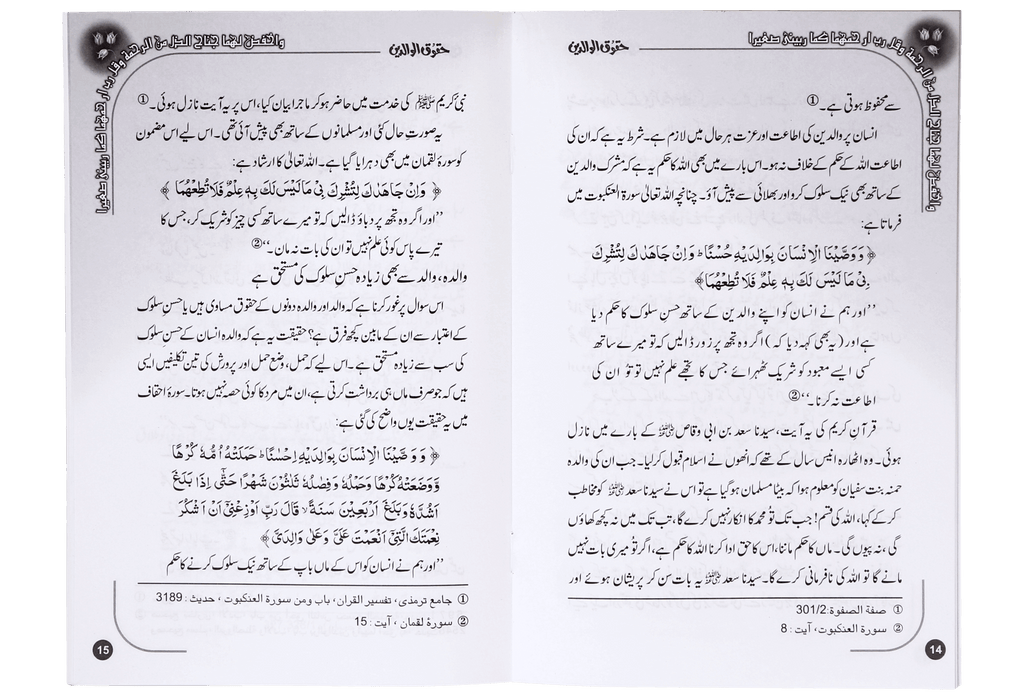 حقوق الوالدین
واخفض لهما جناح الذل من الرحمة وقل رب ارحمهما كما ربيني صغيرا
سے محفوظ ہوتی ہے۔ ①
انسان پر والدین کی اطاعت اور عزت ہر حال میں لازم ہے۔ شرط یہ ہے کہ ان کی
اطاعت اللہ کے حکم کے خلاف نہ ہو۔ اس بارے میں بھی اللہ کا حکم یہ ہے کہ مشرک والدین
کے ساتھ بھی نیک سلوک کرو اور بھلائی سے پیش آؤ۔ چنانچہ اللہ تعالیٰ سورۃ العنکبوت میں
فرماتا ہے:
﴿ وَوَصَّیْنَا الْاِنْسَانَ بِوَالِدَیْهِ حُسْنًا ؕ وَاِنْ جَاهَدٰكَ لِتُشْرِكَ
بِیْ مَا لَیْسَ لَكَ بِهٖ عِلْمٌ فَلَا تُطِعْهُمَا﴾
’’اور ہم نے انسان کو اپنے والدین کے ساتھ حسن سلوک کا حکم دیا
ہے اور (یہ بھی کہہ دیا کہ) اگر وہ تجھ پر زور ڈالیں کہ تو میرے ساتھ
کسی ایسے معبود کو شریک ٹھہرائے جس کا تجھے علم نہیں تو تُو ان کی
اطاعت نہ کرنا۔‘‘ ②
قرآن کریم کی یہ آیت، سیدنا سعد بن ابی وقاص رضی اللہ عنہ کے بارے میں نازل
ہوئی۔ وہ اٹھارہ انیس سال کے تھے کہ انھوں نے اسلام قبول کر لیا۔ جب ان کی والدہ
حمنہ بنت سفیان کو معلوم ہوا کہ بیٹا مسلمان ہو گیا ہے تو اس نے سیدنا سعد رضی اللہ عنہ کو مخاطب
کر کے کہا، اللہ کی قسم! جب تک تُو محمد کا انکار نہیں کرے گا، تب تک میں نہ کچھ کھاؤں
گی، نہ پیوں گی۔ ماں کا حکم ماننا، اس کا حق ادا کرنا اللہ کا حکم ہے، اگر تُو میری بات نہیں
مانے گا تو اللہ کی نافرمانی کرے گا۔ سیدنا سعد رضی اللہ عنہ یہ بات سن کر پریشان ہوئے اور
① صفة الصفوة: 301/2
② سورة العنكبوت، آیت: 8
14
حقوق الوالدین
واخفض لهما جناح الذل من الرحمة وقل رب ارحمهما كما ربيني صغيرا
نبی کریم ﷺ کی خدمت میں حاضر ہو کر ماجرا بیان کیا، اس پر یہ آیت نازل ہوئی۔ ①
یہ صورتِ حال کئی اور مسلمانوں کے ساتھ بھی پیش آئی تھی۔ اس لیے اس مضمون
کو سورۂ لقمان میں بھی دہرایا گیا ہے۔ اللہ تعالیٰ کا ارشاد ہے:
﴿ وَاِنْ جَاهَدٰكَ لِتُشْرِكَ بِیْ مَا لَیْسَ لَكَ بِهٖ عِلْمٌ فَلَا تُطِعْهُمَا ﴾
’’اور اگر وہ تجھ پر دباؤ ڈالیں کہ تو میرے ساتھ کسی چیز کو شریک کر، جس کا
تیرے پاس کوئی علم نہیں تو ان کی بات نہ مان۔‘‘ ②
والدہ، والد سے بھی زیادہ حسنِ سلوک کی مستحق ہے
اس سوال پر غور کرنا ہے کہ والد اور والدہ دونوں کے حقوق مساوی ہیں یا حسنِ سلوک
کے اعتبار سے ان کے مابین کچھ فرق ہے؟ حقیقت یہ ہے کہ والدہ انسان کے حسنِ سلوک
کی سب سے زیادہ مستحق ہے۔ اس لیے کہ حمل، وضع حمل اور پرورش کی تین تکلیفیں ایسی
ہیں کہ جو صرف ماں ہی برداشت کرتی ہے، ان میں مرد کا کوئی حصہ نہیں ہوتا۔ سورۂ احقاف
میں یہ حقیقت یوں واضح کی گئی ہے:
﴿ وَوَصَّیْنَا الْاِنْسَانَ بِوَالِدَیْهِ اِحْسٰنًا ؕ حَمَلَتْهُ اُمُّهٗ كُرْهًا
وَّوَضَعَتْهُ كُرْهًا وَحَمْلُهٗ وَفِصٰلُهٗ ثَلٰثُوْنَ شَهْرًا حَتّٰۤی اِذَا بَلَغَ
اَشُدَّهٗ وَبَلَغَ اَرْبَعِیْنَ سَنَةً ۙ قَالَ رَبِّ اَوْزِعْنِیْۤ اَنْ اَشْكُرَ
نِعْمَتَكَ الَّتِیْۤ اَنْعَمْتَ عَلَیَّ وَعَلٰی وَالِدَیَّ ﴾
’’اور ہم نے انسان کو اس کے ماں باپ کے ساتھ نیک سلوک کرنے کا حکم
① جامع ترمذی، تفسیر القرآن، باب ومن سورة العنكبوت، حدیث: 3189
② سورۂ لقمان، آیت: 15
15